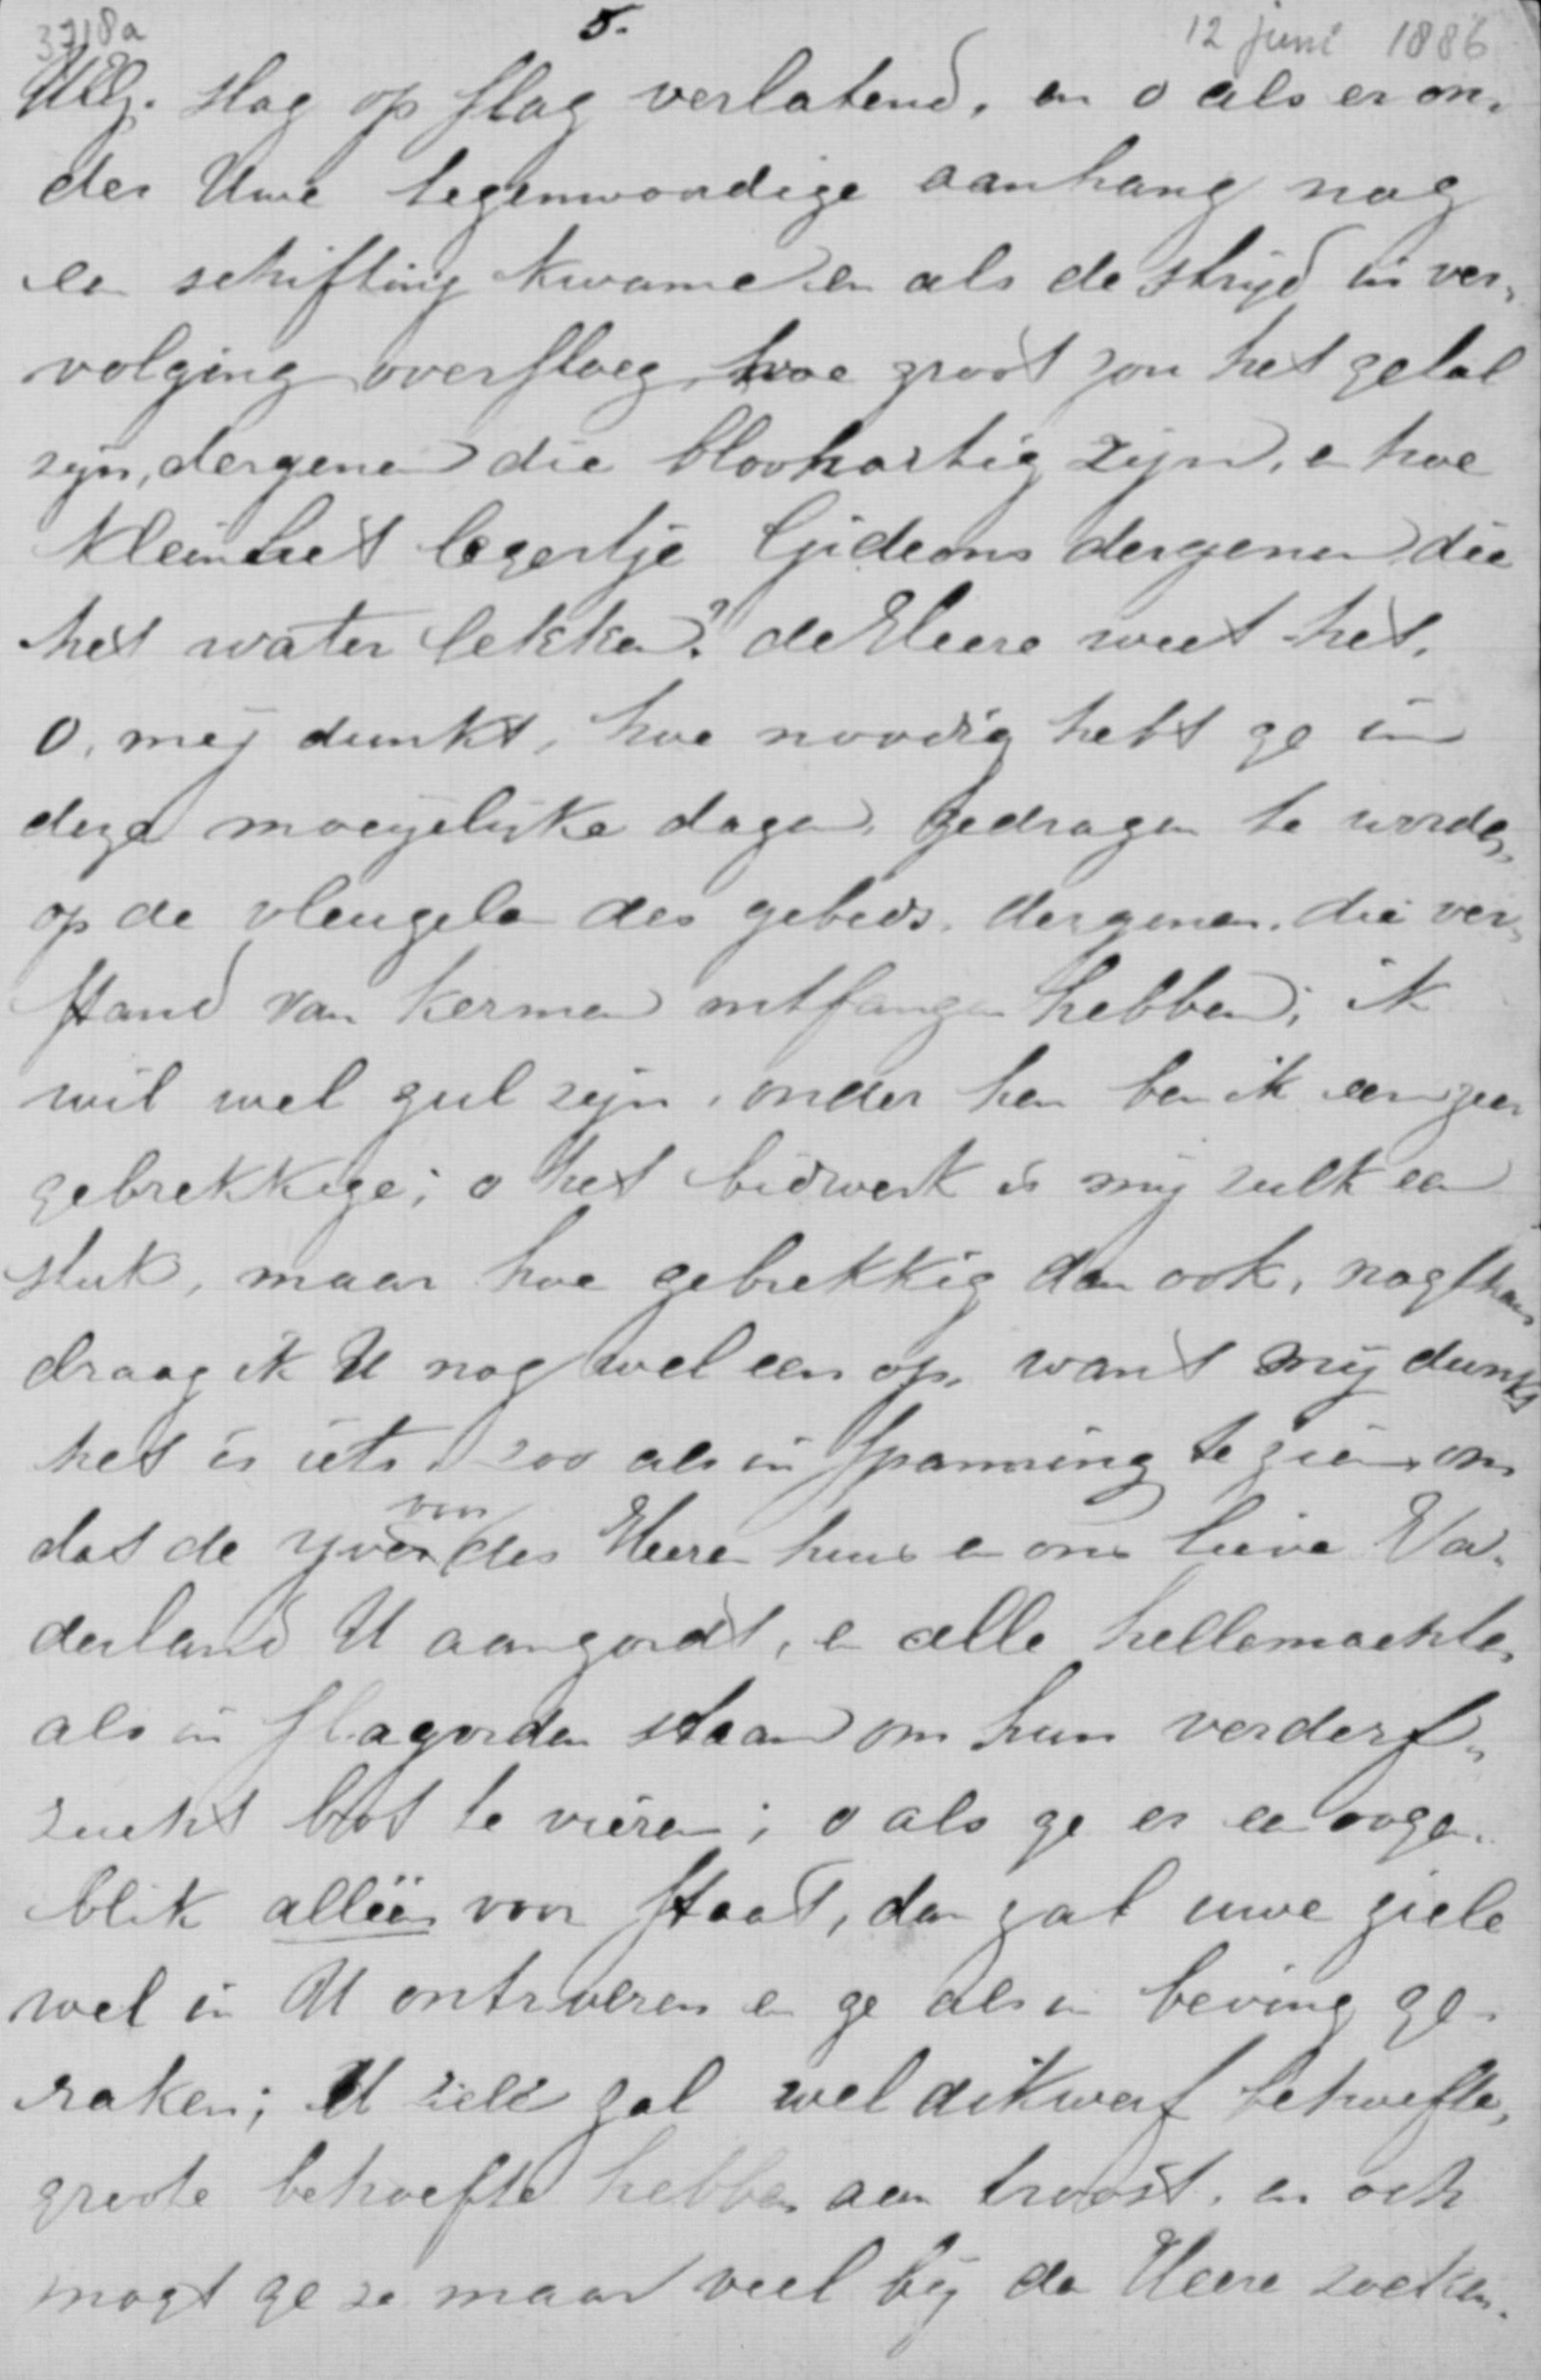 3718a 5. 12 juni 1886
UEg. slag op slag verlatend, en o als er on,
der Uwe tegenwoordige aanhang nog
een schifting kwame en als de strijd in ver,
volging oversloeg, hoe groot zou het getal
zijn, dergenen die bloohartig zijn, en hoe
klein het legertje Gideons dergenen die
het water lekken? de Heere weet het.
O, mij dunkt, hoe noodig hebt ge in
deze moeyelijke dagen, gedragen te worden,
op de vleugelen des gebeds, dergenen, die ver,
stand van kermen ontfangen hebben; ik
wil wel gul zijn, onder hen ben ik een zeer
gebrekkige; o het bidwerk is mij zulk een
stuk, maar hoe gebrekkig dan ook, nogthans
draag ik U nog wel een op, want mij dunkt
het is iets zoo als in spanning te zien, om
dat de yver voor des Heeren huis en ons lieve Va,
derland U aangordt, en alle hellemachten
als in slagorden staan om hun verderf,
zucht bot te vieren; o als ge er een oogen,
blik alleën voor staat, dan zal uwe ziele
wel in U ontroeren en ge als in beving ge,
raken; U ziele zal wel dikwerf behoefte,
groote behoefte hebben aan troost, en och
mogt ge ze maar veel bij de Heere zoeken.